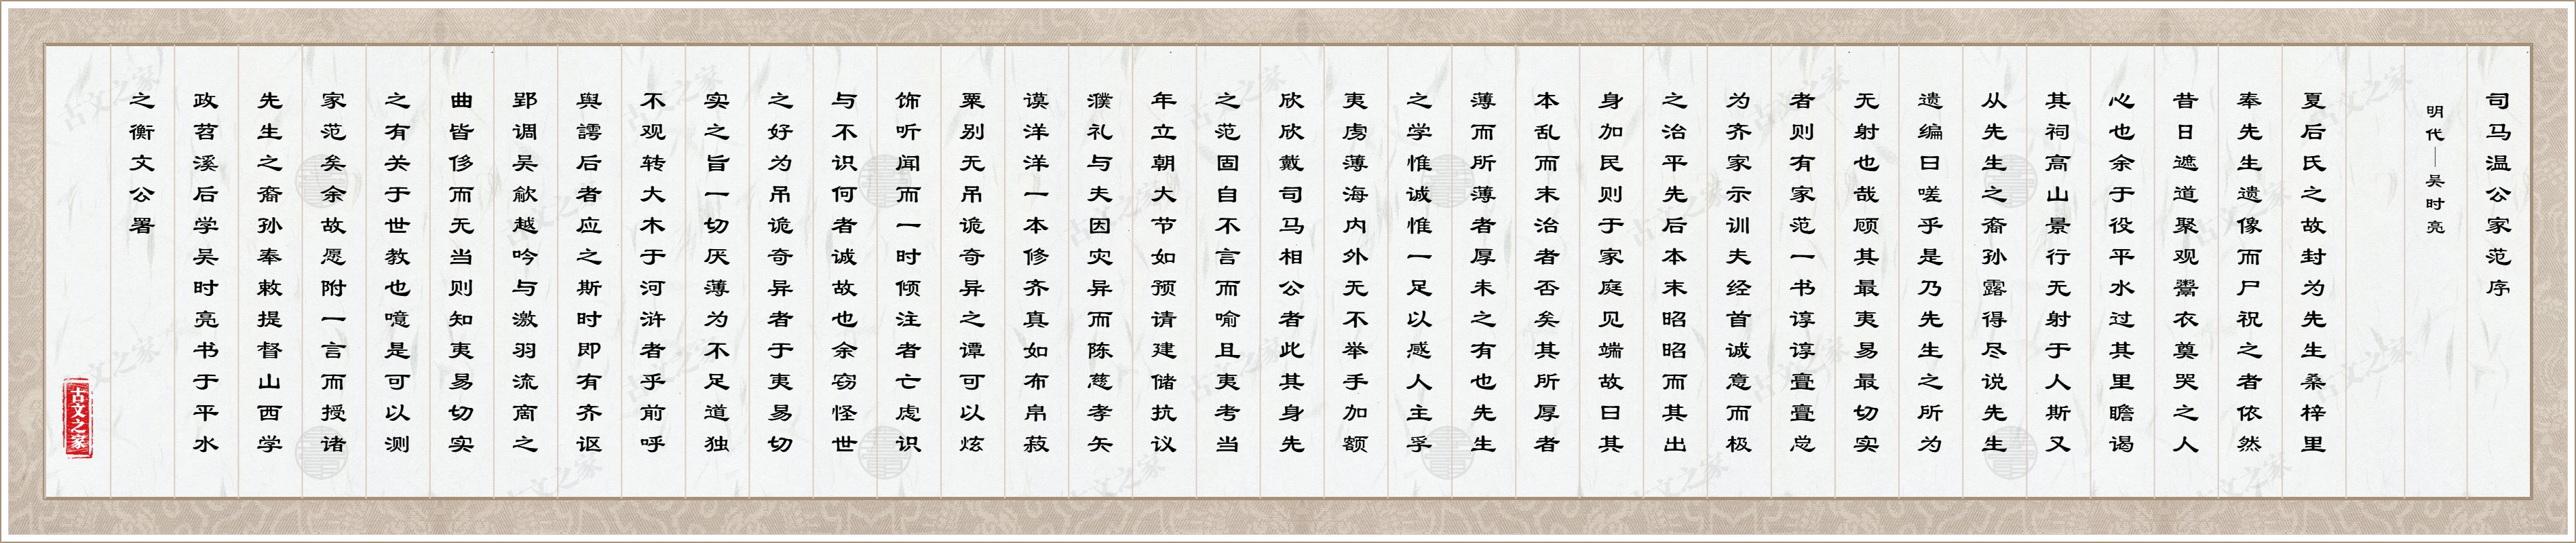 司马温公家范序
明代—吴时亮
夏后氏之故封为先生桑梓里
奉先生遗像而尸祝之者依然
昔日遮道聚观鬻衣奠哭之人
心也余于役平水过其里瞻谒
其祠高山景行无射于人斯又
从先生之裔孙露得尽说先生
遗编曰嗟乎是乃先生之所为
无射也哉顾其最夷易最切实
者则有家范一书谆谆亹亹总
为齐家示训夫经首诚意而极
之治平先后本末昭昭而其出
身加民则于家庭见端故曰其
本乱而末治者否矣其所厚者
薄而所薄者厚未之有也先生
之学惟诚惟一足以感人主孚
夷虏薄海内外无不举手加额
欣欣戴司马相公者此其身先
之范固自不言而喻且夷考当
年立朝大节如预请建储抗议
濮礼与夫因灾异而陈慈孝矢
谟洋洋一本修齐真如布帛菽
栗别无吊诡奇异之谭可以炫
饰听闻而一时倾注者亡虑识
与不识何者诚故也余窃怪世
之好为吊诡奇异者于夷易切
实之旨一切厌薄为不足道独
不观转大木于河浒者乎前呼
舆謣后者应之斯时即有齐讴
郢调吴歈越吟与激羽流商之
曲皆侈而无当则知夷易切实
之有关于世教也噫是可以测
家范矣余故愿附一言而授诸
先生之裔孙奉敕提督山西学
政苕溪后学吴时亮书于平水
之衡文公署
古文之家